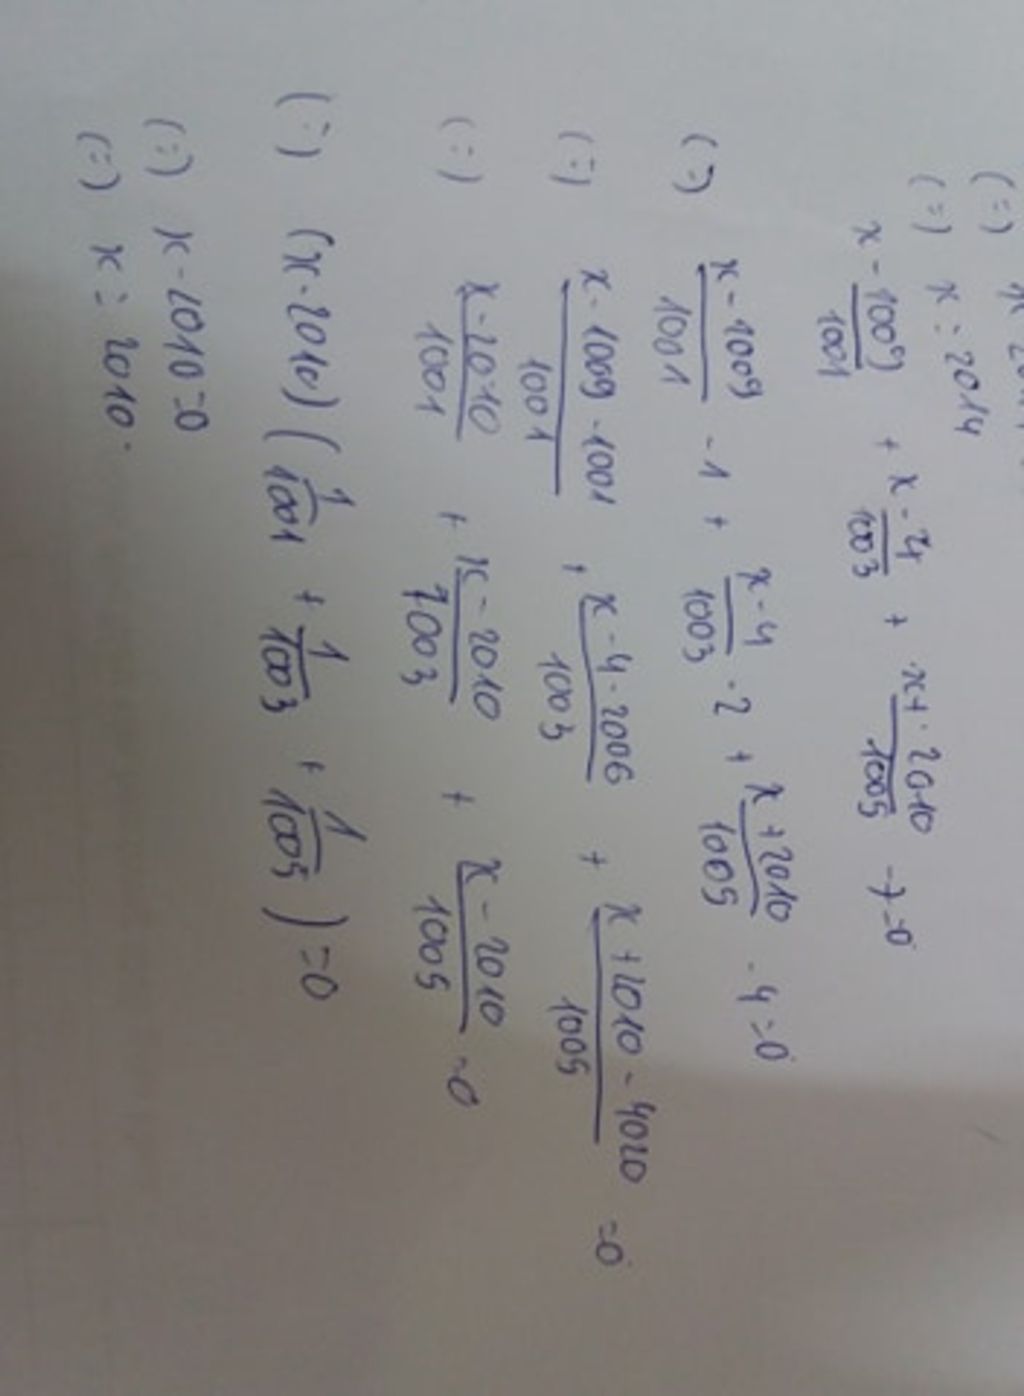 (=) x
(=) x = 2014
x - 1009/1001 + x - 4/1003 + x + 2010/1005 - 7 = 0
(=) x - 1009/1001 - 1 + x - 4/1003 - 2 + x + 2010/1005 - 4 = 0
(=) x - 1009 - 1001/1001 + x - 4 - 2006/1003 + x + 2010 - 4020/1005 = 0
(=) x - 2010/1001 + x - 2010/1003 + x - 2010/1005 = 0
(=) (x - 2010) (1/1001 + 1/1003 + 1/1005) = 0
(=) x - 2010 = 0
(=) x = 2010.